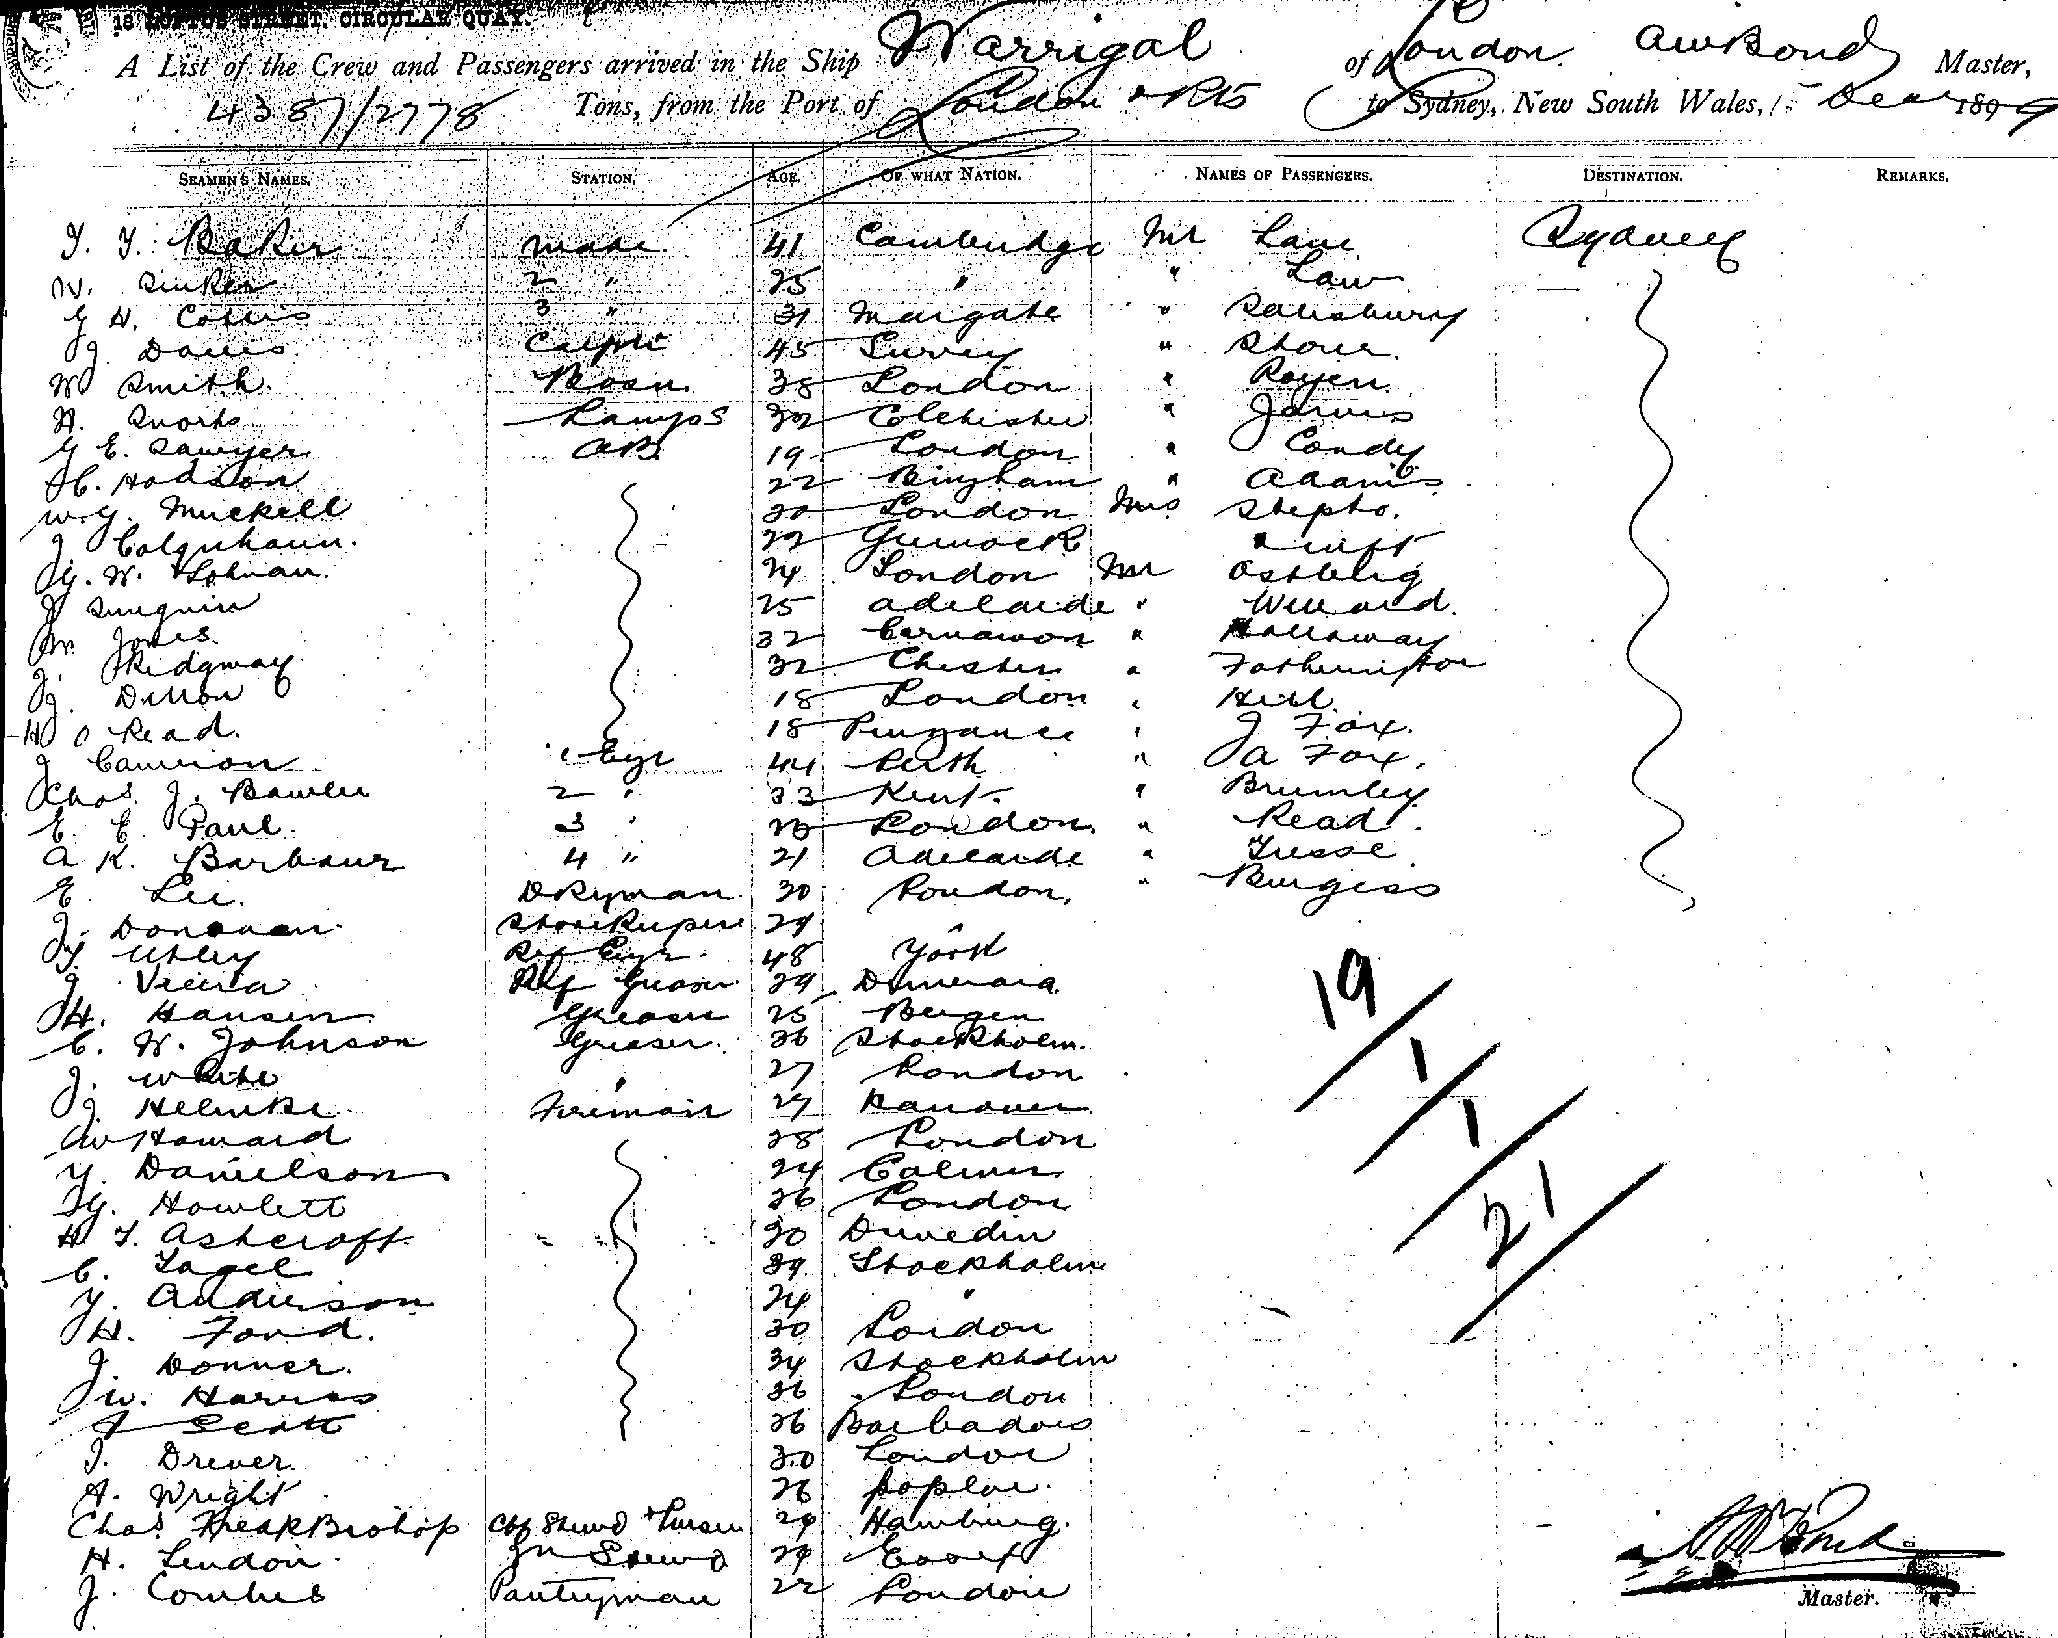 18 LOFTUS STREET, CIRCULAR QUAY.
A List of the Crew and Passengers arrived in the Ship Warrigal of London AW Bond Master,
4387/2778 Tons, from the Port of London & Pts to Sydney, New South Wales, 15 Dec 1899
SEAMEN'S NAMES. STATION. AGE. OF WHAT NATION. NAMES OF PASSENGERS. DESTINATION. REMARKS.
Baker Mate 41 Cambridge Mr Lane Sydney
W. Sinker 2 " 25 " " Law
G H. Collis 3 " 31 Margate " Salisbury
J Davies 45 Surrey "
W Smith. Bosn 38 London "
H. Lamps Colchester " Jarvis
G E. Sawyer AB 19 London " Condy
C. Hodson 22 Bingham " Adams
W. G. Muckell London Mrs Stepto.
J Colquhoun. "
G. W. 24 London Mr
J 25 Adelaide " Willard.
W. Jones 32 Carnarvon " Holloway
J. Ridgway 32 Chester "
J. Dillon 18 London " Hill
H O Read. 18 Penzance " J Fox.
J Cameron 1 Engr 44 Perth " A Fox.
Chas. J. 2 " 33 Kent. " Brumley
E. E. Paul. 3 " London. " Read.
A K. Barbour 4 " 21 Adelaide "
E. Lee. Dkyman 30 London. " Burgess
J. Donovan Storekeeper 29 "
Utley Ref Engr 48 York
J Vieira Ref Greaser 29 Demerara
H. Hansen Greaser 25 Bergen
C. W. Johnson Greaser. 36 Stockholm.
J. White " 27 London
J. Helmke Fireman 27 Hanover
W Howard 38 London
Y. Danielson 24 Calmer
G. Howlett 36 London
H T. Ashcroft 30 Dunedin
C. Tagel 39 Stockholm
Y. Anderson 24 "
H. Ford. 30 London
J. Donner. 34 Stockholm
W. Harris 36 London
J Scott 26 Barbados
J. Drever 30 London
A. Wright 26 Poplar.
Chas. Bishop Chf Stewd & Purser 29 Hamburg.
H. Lendon 2n Stewd 29 Essex
J. Combes Pantryman 22 London
19
1
1
21
AW Bond
Master.